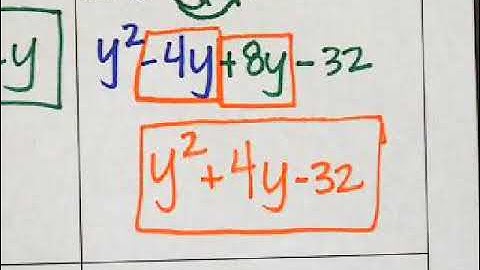 -y
y²-4y+8y-32
y²+4y-32